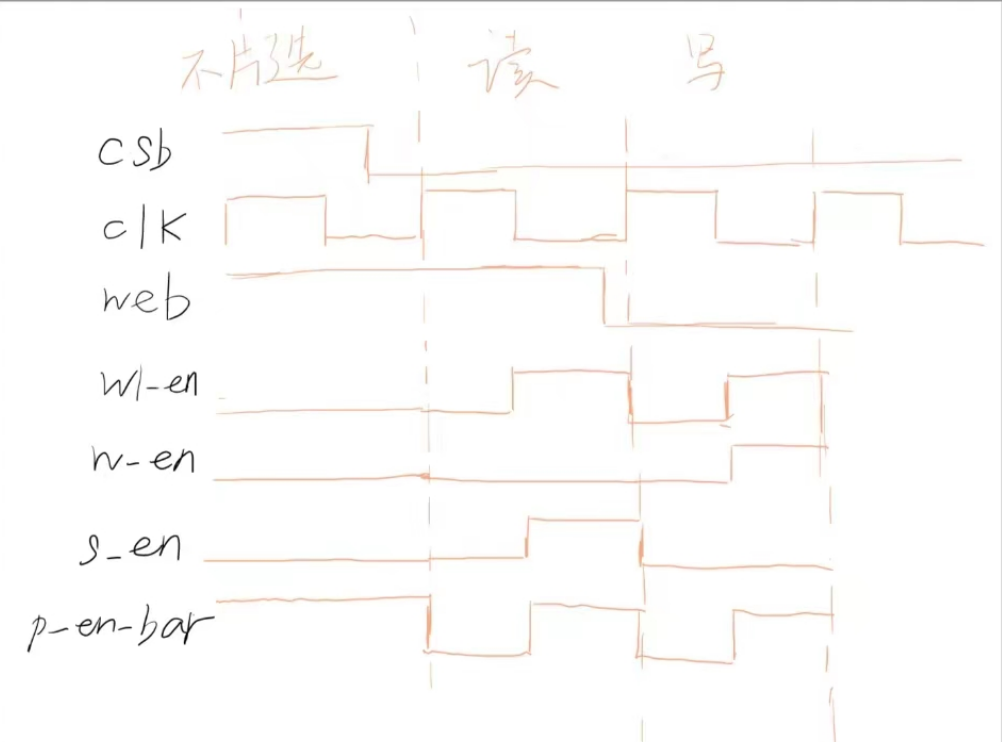 不片选 读 写
csb
clk
web
wl-en
w-en
s-en
p-en-bar